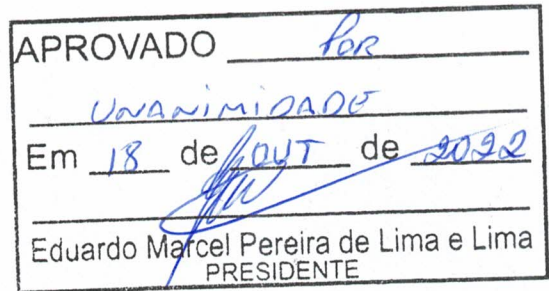 APROVADO POR
UNANIMIDADE
Em 18 de OUT de 2022
Eduardo Marcel Pereira de Lima e Lima
PRESIDENTE